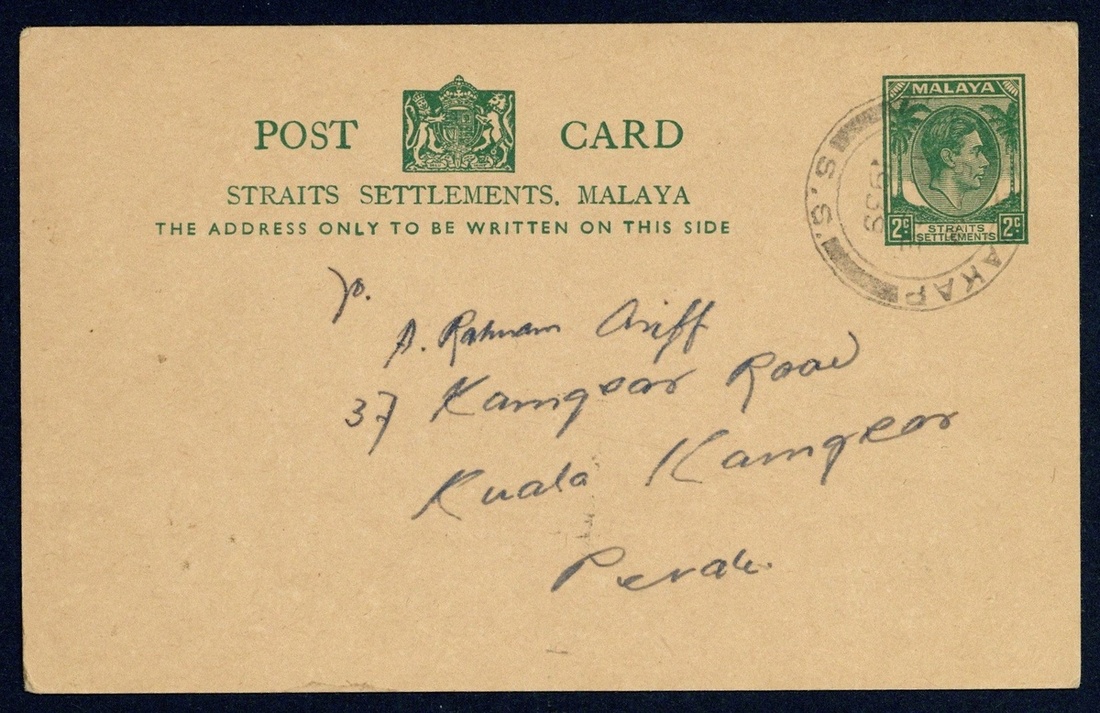 POST CARD
STRAITS SETTLEMENTS, MALAYA
THE ADDRESS ONLY TO BE WRITTEN ON THIS SIDE
MALAYA
2c STRAITS SETTLEMENTS 2c
S.S.
1939
AKAP
To.
A. Rahman Ariff
37 Kamgsar Road
Kuala Kamgsar
Perak.